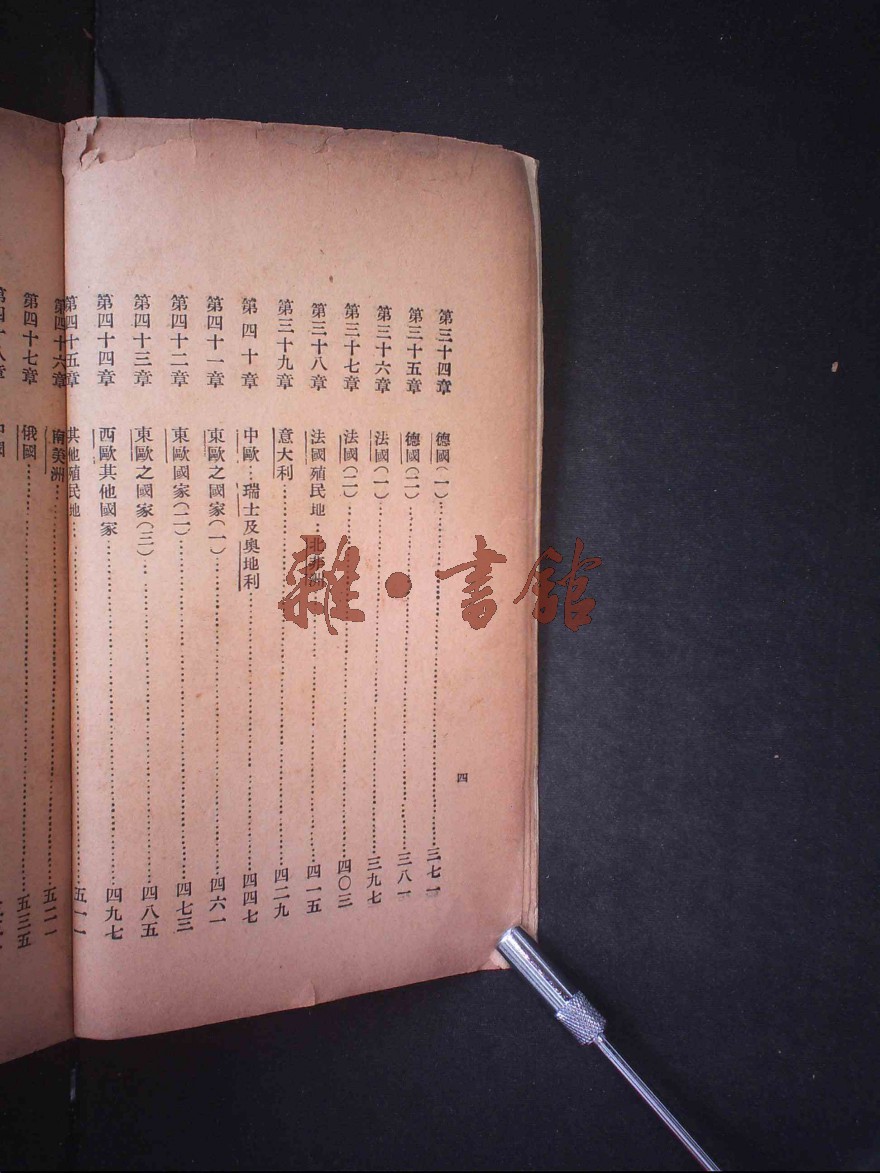 四
第三十四章 德國(一)……三七一
第三十五章 德國(二)……三八一
第三十六章 法國(一)……三九七
第三十七章 法國(二)……四〇三
第三十八章 法國殖民地:北非洲……四一五
第三十九章 意大利……四二九
第四十章 中歐:瑞士及奧地利……四四七
第四十一章 東歐之國家(一)……四六一
第四十二章 東歐國家(二)……四七三
第四十三章 東歐之國家(三)……四八五
第四十四章 西歐其他國家……四九七
第四十五章 其他殖民地……五一一
第四十六章 南美洲……五二一
第四十七章 俄國……五三五
第四十八章
雜·書館